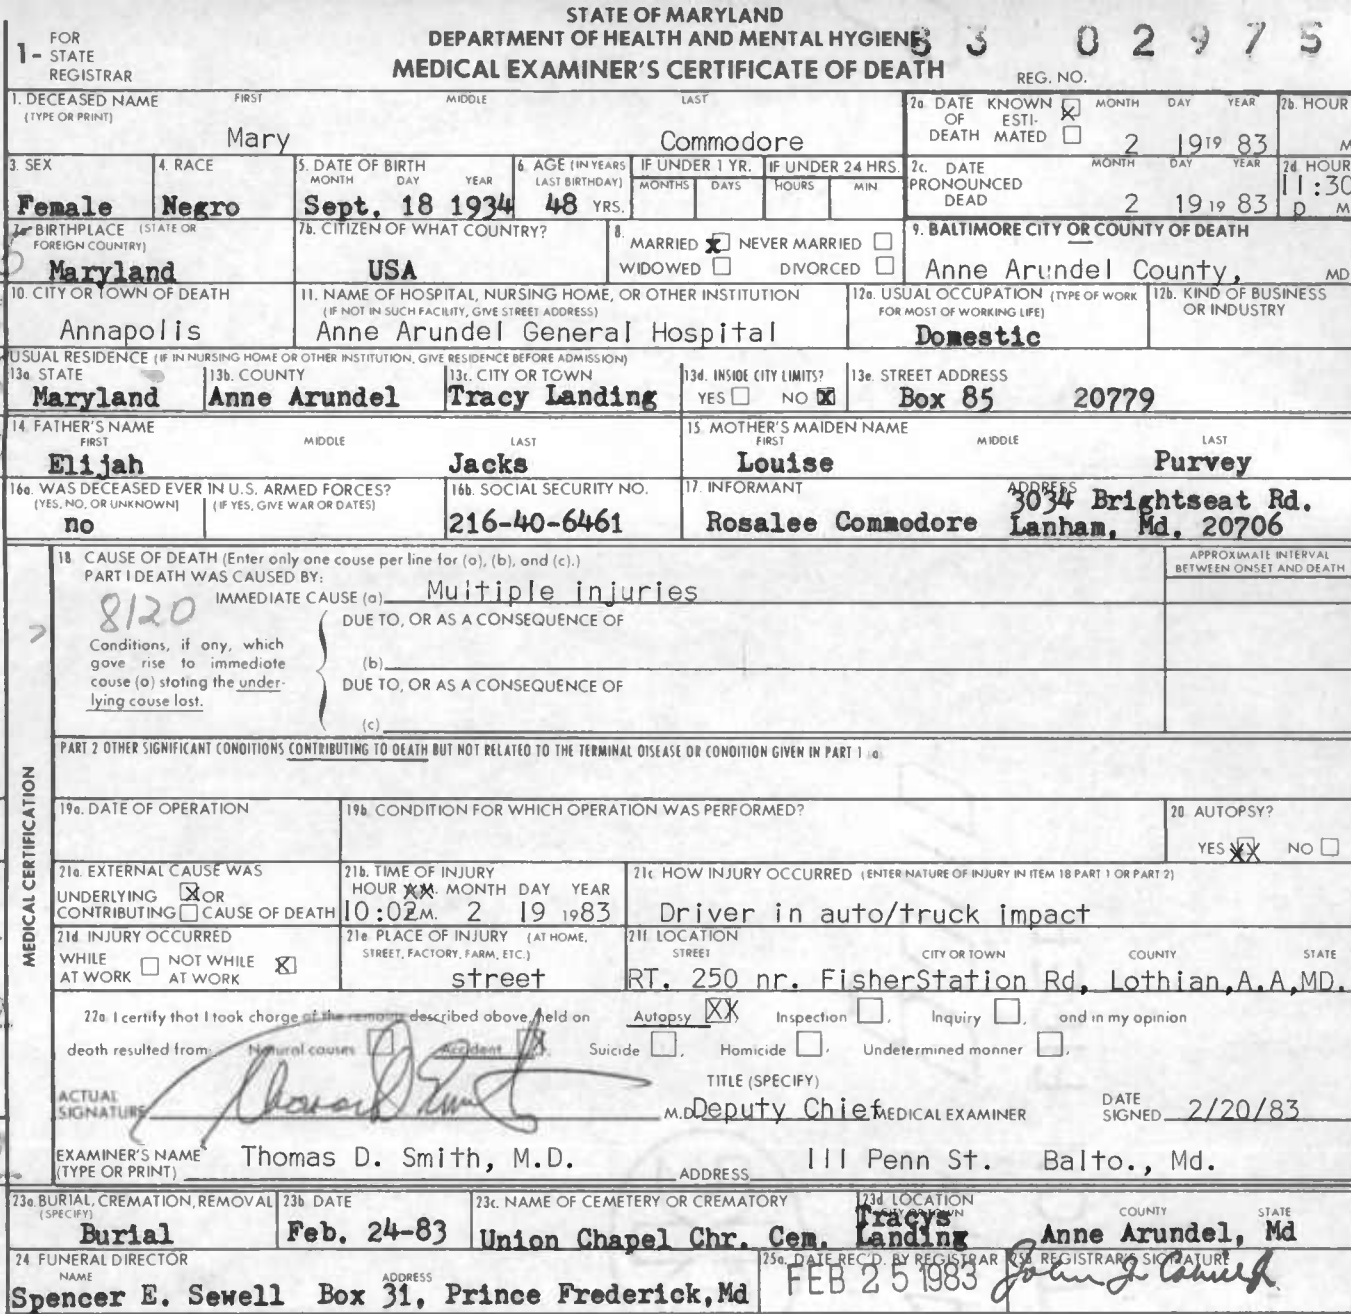 STATE OF MARYLAND
DEPARTMENT OF HEALTH AND MENTAL HYGIENE
MEDICAL EXAMINER'S CERTIFICATE OF DEATH
1- FOR STATE REGISTRAR
REG. NO. 83 02975
1. DECEASED NAME (TYPE OR PRINT) FIRST MIDDLE LAST
Mary Commodore
2a. DATE OF DEATH KNOWN X ESTIMATED MONTH DAY YEAR
2 19 19 83
2b. HOUR M
3. SEX
Female
4. RACE
Negro
5. DATE OF BIRTH MONTH DAY YEAR
Sept. 18 1934
6. AGE (IN YEARS LAST BIRTHDAY)
48 YRS.
IF UNDER 1 YR. MONTHS DAYS
IF UNDER 24 HRS. HOURS MIN
2c. DATE PRONOUNCED DEAD MONTH DAY YEAR
2 19 19 83
2d HOUR
11:30 p M
7a BIRTHPLACE (STATE OR FOREIGN COUNTRY)
Maryland
7b. CITIZEN OF WHAT COUNTRY?
USA
8. MARRIED X NEVER MARRIED
WIDOWED DIVORCED
9. BALTIMORE CITY OR COUNTY OF DEATH
Anne Arundel County, MD
10. CITY OR TOWN OF DEATH
Annapolis
11. NAME OF HOSPITAL, NURSING HOME, OR OTHER INSTITUTION
(IF NOT IN SUCH FACILITY, GIVE STREET ADDRESS)
Anne Arundel General Hospital
12a. USUAL OCCUPATION (TYPE OF WORK FOR MOST OF WORKING LIFE)
Domestic
12b. KIND OF BUSINESS OR INDUSTRY
USUAL RESIDENCE (IF IN NURSING HOME OR OTHER INSTITUTION, GIVE RESIDENCE BEFORE ADMISSION)
13a. STATE
Maryland
13b. COUNTY
Anne Arundel
13c. CITY OR TOWN
Tracy Landing
13d. INSIDE CITY LIMITS?
YES NO X
13e. STREET ADDRESS
Box 85 20779
14. FATHER'S NAME FIRST MIDDLE LAST
Elijah Jacks
15. MOTHER'S MAIDEN NAME FIRST MIDDLE LAST
Louise Purvey
16a. WAS DECEASED EVER IN U.S. ARMED FORCES?
(YES, NO, OR UNKNOWN) (IF YES, GIVE WAR OR DATES)
no
16b. SOCIAL SECURITY NO.
216-40-6461
17. INFORMANT ADDRESS
Rosalee Commodore 3034 Brightseat Rd.
Lanham, Md. 20706
MEDICAL CERTIFICATION
18. CAUSE OF DEATH (Enter only one couse per line for (a), (b), and (c).)
PART I DEATH WAS CAUSED BY:
IMMEDIATE CAUSE (a) Multiple injuries
APPROXIMATE INTERVAL BETWEEN ONSET AND DEATH
8120
DUE TO, OR AS A CONSEQUENCE OF
Conditions, if any, which gave rise to immediate cause (a) stating the under-lying couse lost.
(b)
DUE TO, OR AS A CONSEQUENCE OF
(c)
PART 2 OTHER SIGNIFICANT CONDITIONS CONTRIBUTING TO DEATH BUT NOT RELATED TO THE TERMINAL DISEASE OR CONDITION GIVEN IN PART 1 a
19a. DATE OF OPERATION
19b CONDITION FOR WHICH OPERATION WAS PERFORMED?
20 AUTOPSY?
YES XX NO
21a. EXTERNAL CAUSE WAS
UNDERLYING X OR
CONTRIBUTING CAUSE OF DEATH
21b. TIME OF INJURY
HOUR MONTH DAY YEAR
10:02 M. 2 19 1983
21c HOW INJURY OCCURRED (ENTER NATURE OF INJURY IN ITEM 18 PART 1 OR PART 2)
Driver in auto/truck impact
21d INJURY OCCURRED
WHILE AT WORK NOT WHILE AT WORK X
21e PLACE OF INJURY (AT HOME, STREET, FACTORY, FARM, ETC.)
street
21f LOCATION STREET CITY OR TOWN COUNTY STATE
RT. 250 nr. FisherStation Rd, Lothian,A.A,MD.
22a I certify that I took charge of the remains described above, held on Autopsy XX, Inspection, Inquiry, and in my opinion
death resulted from Natural causes Accident X, Suicide, Homicide, Undetermined manner,
ACTUAL SIGNATURE M.D.
TITLE (SPECIFY)
Deputy Chief MEDICAL EXAMINER
DATE SIGNED 2/20/83
EXAMINER'S NAME (TYPE OR PRINT) Thomas D. Smith, M.D.
ADDRESS 111 Penn St. Balto., Md.
23a. BURIAL, CREMATION, REMOVAL (SPECIFY)
Burial
23b DATE
Feb. 24-83
23c. NAME OF CEMETERY OR CREMATORY
Union Chapel Chr. Cem.
23d LOCATION CITY OR TOWN COUNTY STATE
Tracys Landing Anne Arundel, Md
24 FUNERAL DIRECTOR
NAME ADDRESS
Spencer E. Sewell Box 31, Prince Frederick,Md
25a. DATE REC'D. BY REGISTRAR
FEB 25 1983
25b REGISTRAR'S SIGNATURE